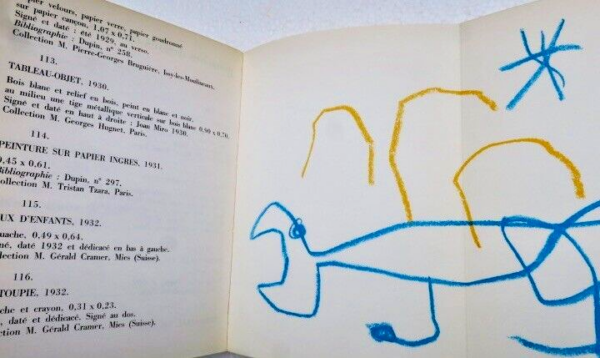 pier velours, papier verre, papier goudronné
sur papier cançon, 1.07 x 0.71.
Signé et daté : été 1929, au verso.
Bibliographie : Dupin, n° 258.
Collection M. Pierre-Georges Bruguière, Issy-les-Moulineaux.
113.
TABLEAU-OBJET, 1930.
Bois blanc et relief en bois, peint en blanc et noir,
au milieu une tige métallique verticale sur bois blanc 0,90 x 0,70.
Signé et daté en haut à droite : Joan Miro 1930.
Collection M. Georges Hugnet, Paris.
114.
PEINTURE SUR PAPIER INGRES, 1931.
0,45 x 0.61.
Bibliographie : Dupin, n° 297.
Collection M. Tristan Tzara, Paris.
115.
UX D'ENFANTS, 1932.
uache, 0,49 x 0,64.
né, daté 1932 et dédicacé en bas à gauche.
lection M. Gérald Cramer, Mies (Suisse).
116.
TOUPIE, 1932.
che et crayon, 0,31 x 0,23.
, daté et dédicacé. Signé au dos.
ction M. Gérald Cramer, Mies (Suisse).